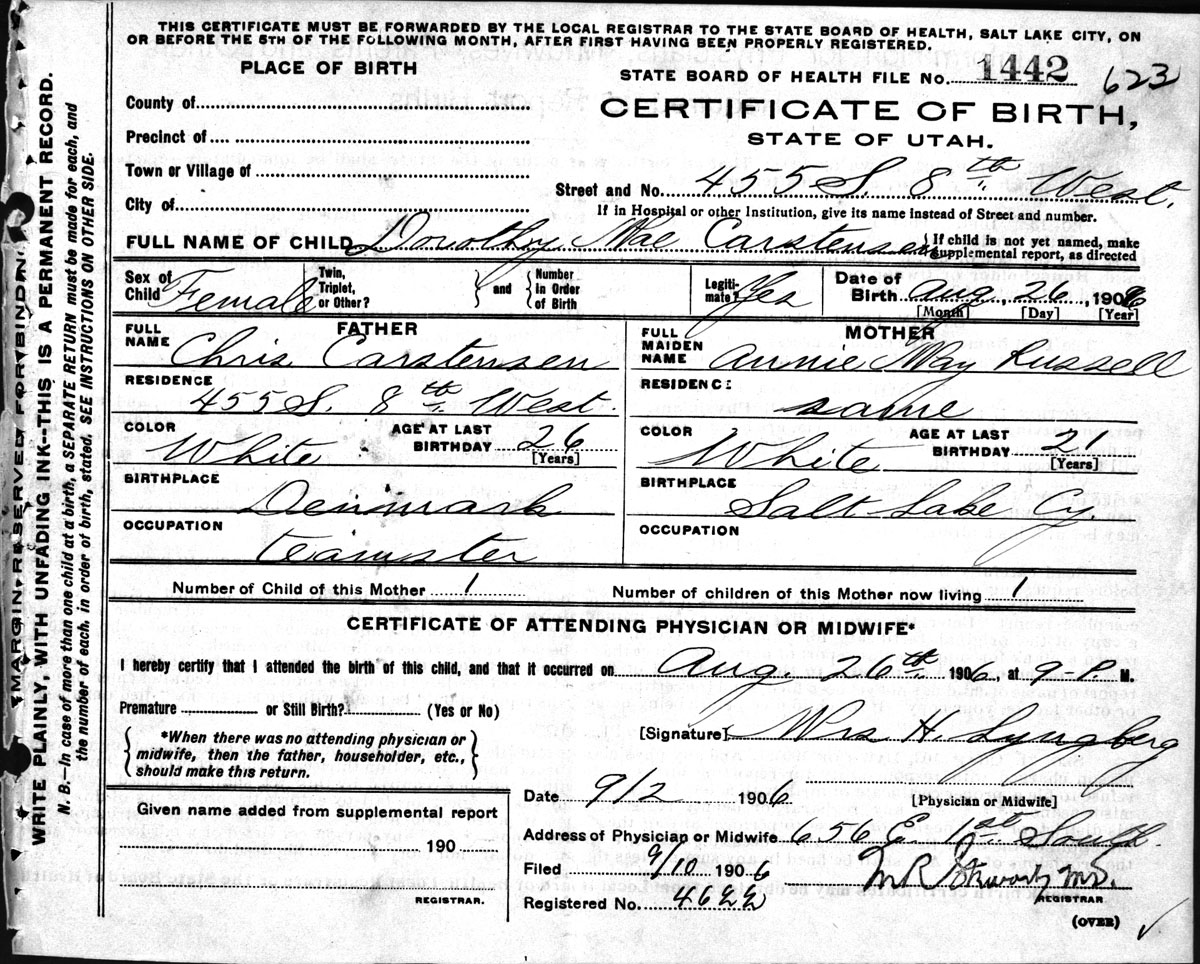 THIS CERTIFICATE MUST BE FORWARDED BY THE LOCAL REGISTRAR TO THE STATE BOARD OF HEALTH, SALT LAKE CITY, ON
OR BEFORE THE 5TH OF THE FOLLOWING MONTH, AFTER FIRST HAVING BEEN PROPERLY REGISTERED.
PLACE OF BIRTH
STATE BOARD OF HEALTH FILE No. 1442 623
County of
CERTIFICATE OF BIRTH,
Precinct of
STATE OF UTAH.
Town or Village of
Street and No. 455 S. 8th West.
City of
If in Hospital or other Institution, give its name instead of Street and number.
FULL NAME OF CHILD Dorothy Mae Carstensen { If child is not yet named, make
supplemental report, as directed
Sex of Child Female
Twin, Triplet, or Other? } and { Number in Order of Birth
Legitimate? Yes
Date of Birth Aug, 26, 1906
[Month] [Day] [Year]
FATHER
FULL NAME Chris Carstensen
RESIDENCE
455 S. 8th West.
COLOR White AGE AT LAST BIRTHDAY 26
[Years]
BIRTHPLACE
Denmark
OCCUPATION
teamster
MOTHER
FULL MAIDEN NAME Annie May Russell
RESIDENCE
same
COLOR White AGE AT LAST BIRTHDAY 21
[Years]
BIRTHPLACE
Salt Lake Cy.
OCCUPATION
Number of Child of this Mother 1 Number of children of this Mother now living 1
CERTIFICATE OF ATTENDING PHYSICIAN OR MIDWIFE*
I hereby certify that I attended the birth of this child, and that it occurred on Aug. 26th 1906, at 9-P. M.
Premature or Still Birth? (Yes or No)
{ *When there was no attending physician or
midwife, then the father, householder, etc.,
should make this return. }
[Signature] Mrs H. Lyngberg
[Physician or Midwife]
Date 9/2 1906
Address of Physician or Midwife 656 E. 1st South.
Filed 9/10 1906
Registered No. 4622
M.D.
REGISTRAR
(OVER)
Given name added from supplemental report
190
REGISTRAR.
MARGIN RESERVED FOR BINDING
WRITE PLAINLY, WITH UNFADING INK--THIS IS A PERMANENT RECORD.
N. B.—In case of more than one child at a birth, a SEPARATE RETURN must be made for each, and
the number of each, in order of birth, stated. SEE INSTRUCTIONS ON OTHER SIDE.